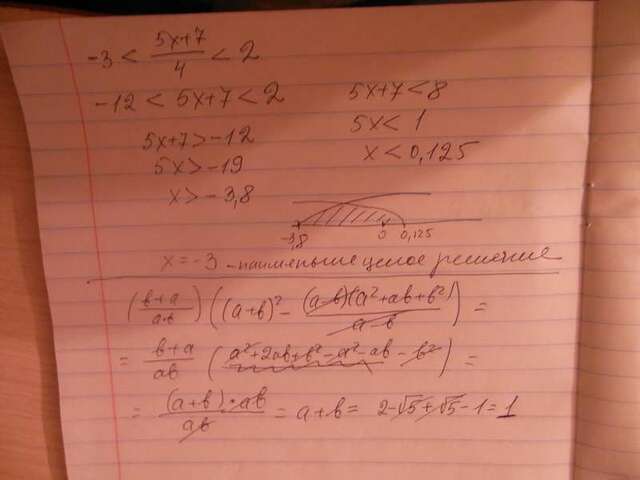 -3 < (5x+7)/4 < 2
-12 < 5x+7 < 2
5x+7 > -12
5x > -19
x > -3,8
5x+7 < 8
5x < 1
x < 0,125
-3,8 0 0,125
x = -3 - наименьшее целое решение
((b+a)/ab) ((a+b)² - (a-b)(a²+ab+b²)/(a-b)) =
= (b+a)/ab (a²+2ab+b²-a²-ab-b²) =
= (a+b)·ab/ab = a+b = 2-√5+√5-1=1